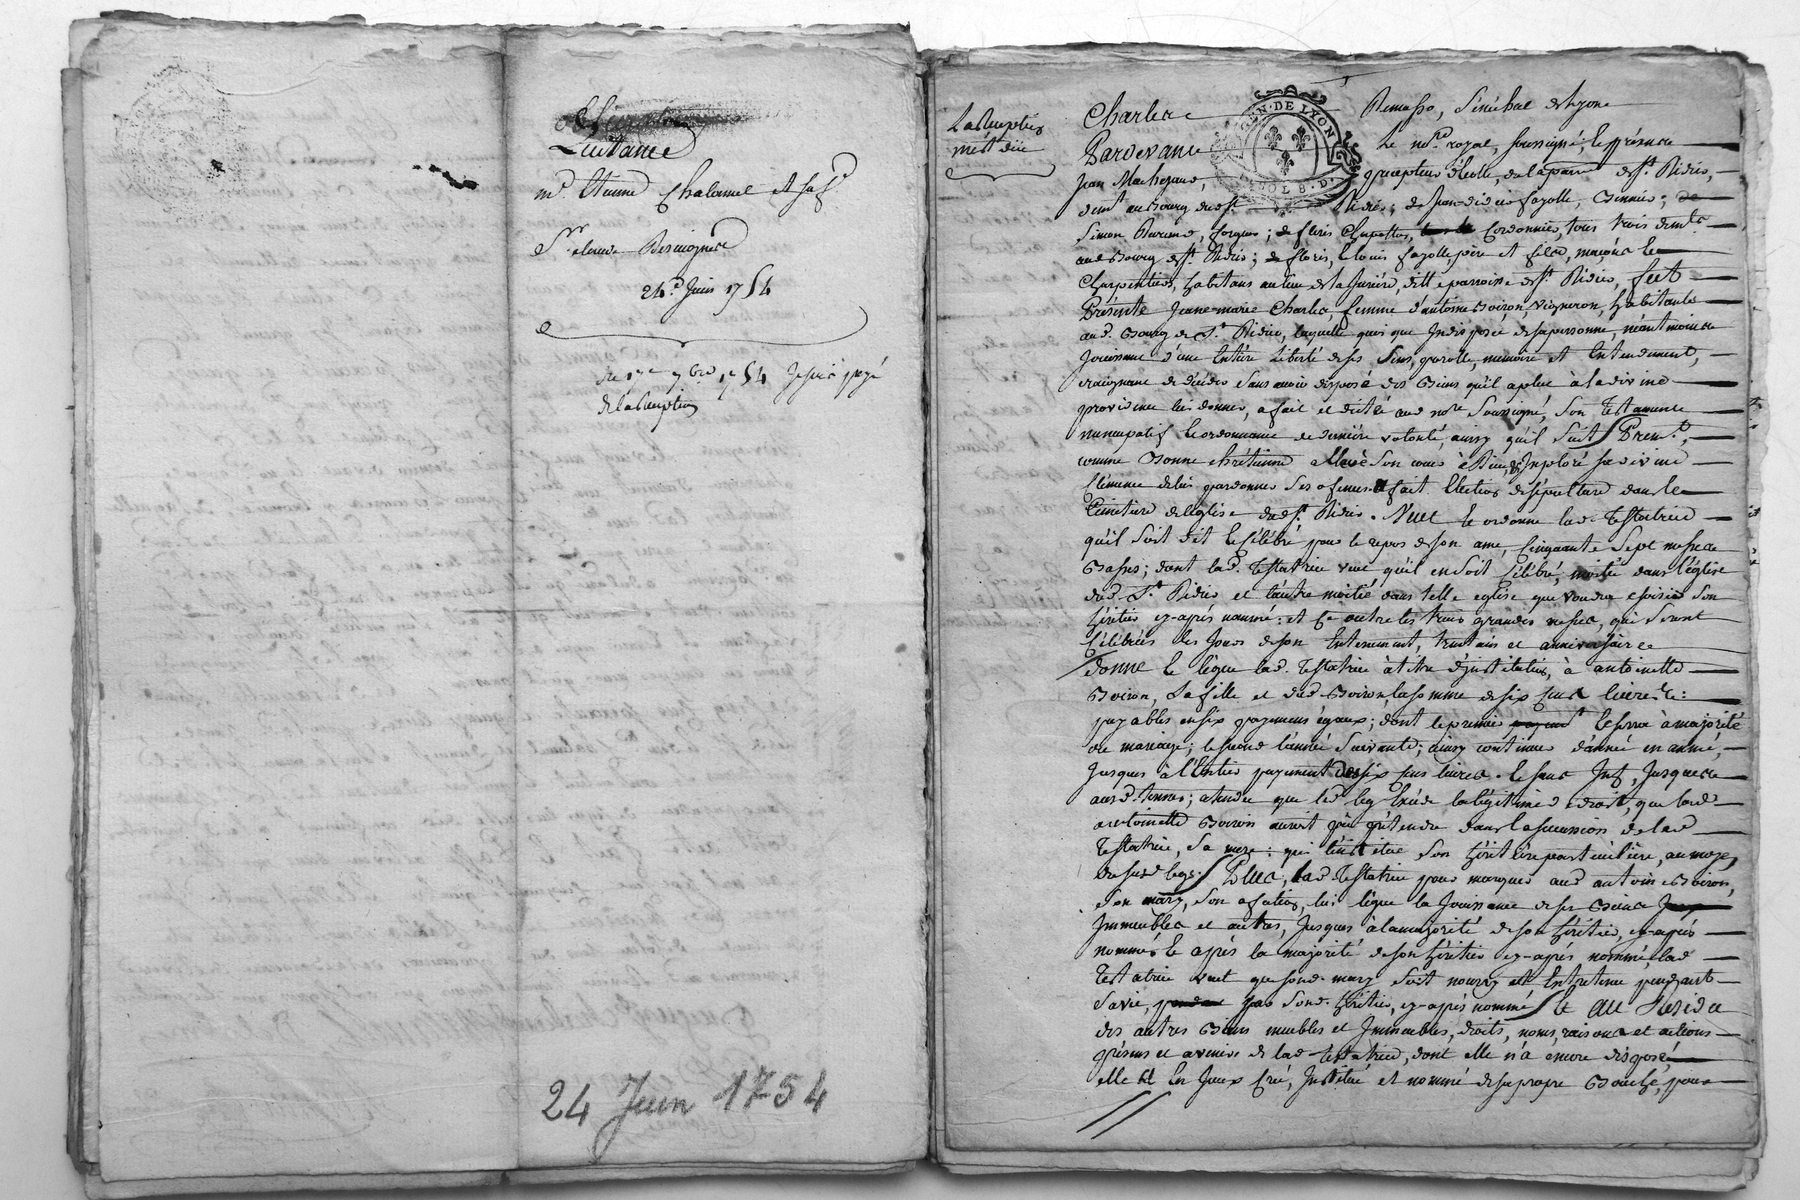 Quittance
Md. Etienne Chalomel et sa f.
Sr. claude Besacignee
24e. Juin 1754
ce 17e 7bre 1754 Je suis payé
de la Reception
24 Juin 1754
La Reception
m'est düe
GEN. DE LYON
Charles Remasso, Sénéchal de Lyon
Pardevant Le nore. royal, soussigné, & présence
Jean Machezaud, precepteur d'école, de la parr. de St. Didier,
demt. au Bourg dud. St. Didier; de Jean-didier fayolle,
Simon Durand, forgeur; de floris Chapellon, Cordonnier, tous trois demts.
aud. Bourg de St. Didier; de floris, & Louis fayolle père et fils, maçons &
Charpentiers, habitans au lieu de la ditte parroisse de St. Didier, fut
Présente Jeanne-marie Charles, femme d'antoine Boiron, vigneron, habitante
aud. Bourg de St. Didier, laquelle quoi que Indisposée de sa personne, néantmoins
Jouissant d'une Entière Liberté de ses Sens, parolle, memoire et Entendement,
craignant de décéder sans avoir disposé des Biens qu'il a plu à la divine
providence lui donner, a fait et dicté aud. nore. Soussigné, Son Testament
nuncupatif & ordonnance de dernière volonté, ainsy qu'il suit // Premt.,
comme Bonne chrétienne a Elevé Son cœur à Dieu, & Imploré sa divine
Clémence de lui pardonner ses ofenses. a fait Election de sépulture dans le
Cimetière de l'église dud. St. Didier. Veut & ordonne lad. Testatrice
qu'il soit dit & Célébré pour le repos de son ame, Cinquante Sept messes
Basses; dont lad. Testatrice veut qu'il en soit Célébré, moitié dans l'église
dud. St. Didier et l'autre moitié dans telle eglise que voudra choisir son
héritier cy-après nommé: et ce outre les trois grandes messes, qui seront
Célébrées les Jours de son Enterrement, trentain et anniversaire
donne & lègue lad. Testatrice à titre d'institution, à antoinette
Boiron, Sa fille et dud. Boiron, la somme de six cens livres:
payables en six payemens égaux; dont le premier se fera à majorité
ou mariage; le second l'année suivante; ainsy continuer d'année en année,
Jusques à l'Entier payement des six cens livres. & sans Int., Jusques
auxd. termes; atendu que led. leg Excéde la légitime & droit, que lad.
antoinette Boiron auroit pû prétendre dans la succession de lad.
Testatrice, Sa mere: qui l'institue Son héritière particulière, au moyen
du susd. legs. // Plus, lad. Testatrice pour marquer aud. antoine Boiron,
Son mary, Son afection, lui lègue la Jouissance de ses Biens
Immeubles et autres, Jusques à la majorité de son héritier, cy-après
nommé, & après la majorité de son héritier cy-après nommé, lad.
Testatrice veut que sond. mary soit nourry et Entretenu pendant
sa vie, par sond. héritier, cy-après nommé // & Au Résidu
des autres Biens meubles et Immeubles, droits, noms, raisons et actions
présens et avenir de lad. testatrice, dont elle n'a encore disposé,
elle en Iceux Créé, Institué et nommé de sa propre Bouche, pour